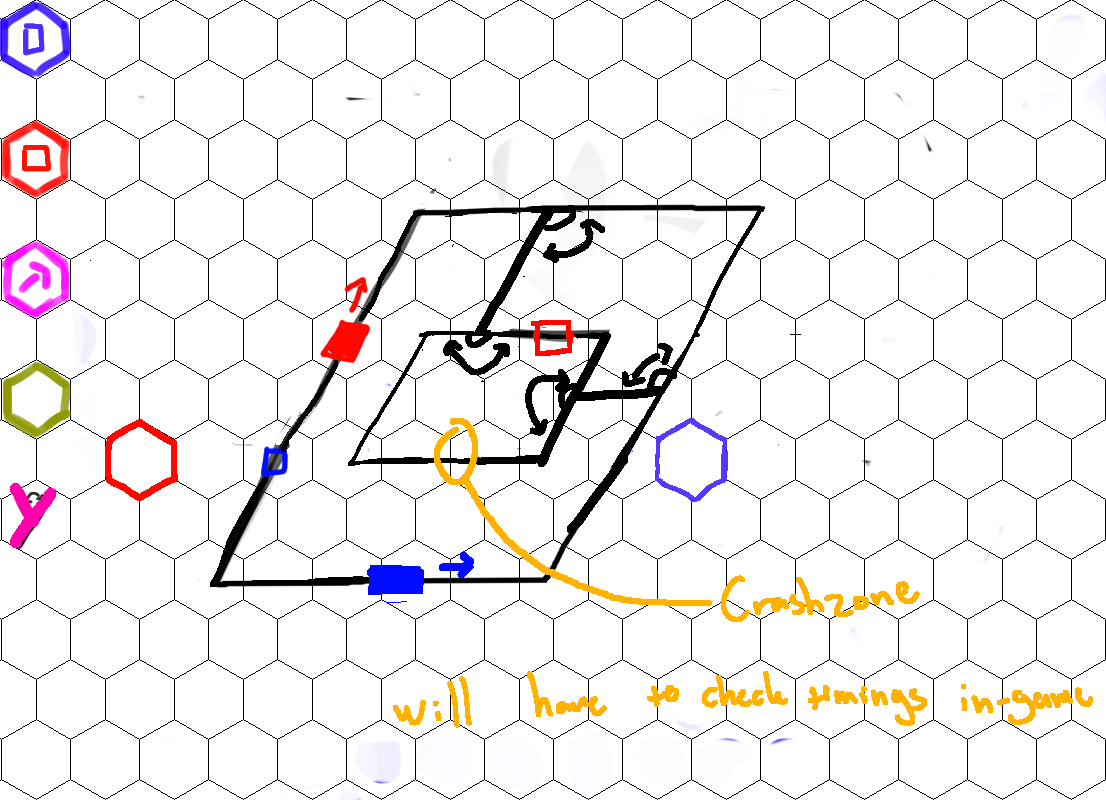 Crashzone
will have to check timings in-game